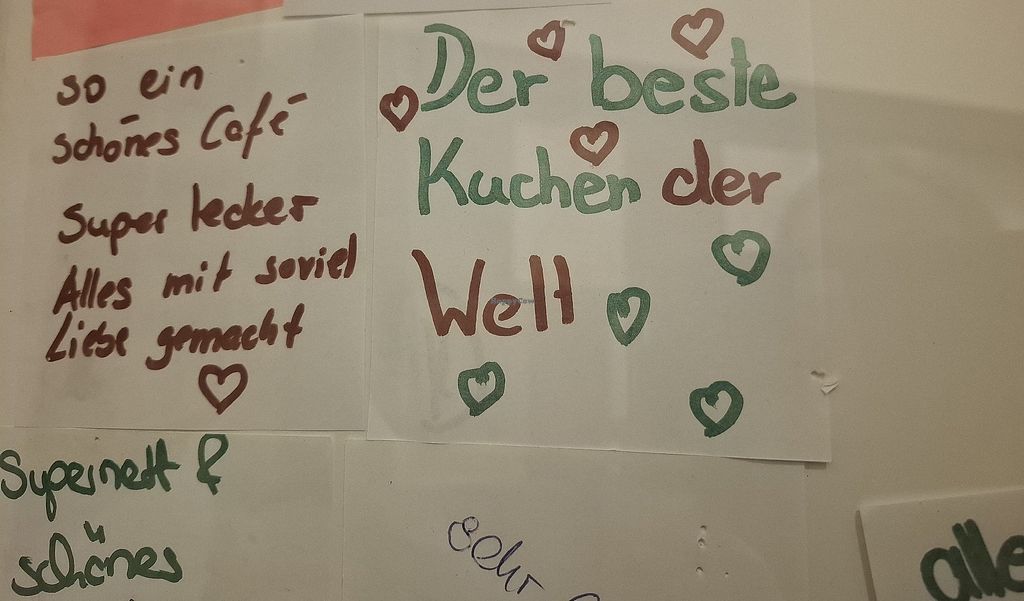 so ein
schönes Café
super lecker
Alles mit soviel
Liebe gemacht
Der beste
Kuchen der
Welt
Supernett &
schönes
sehr
alle